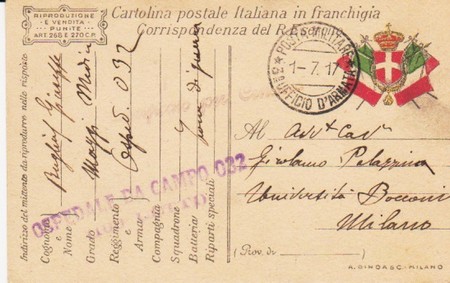 RIPRODUZIONE
E VENDITA
PUNITE
ART. 268 E 270 C.P.
Cartolina postale Italiana in franchigia
Corrispondenza del R. Esercito
POSTA MILITARE
1-7.17
UFFICIO D'ARMATA
Indirizzo del mittente da riprodurre nelle risposte
Cognome e Nome
Giuseppe
Grado
Reggimento e Arma
Osped. 032
Compagnia
Squadrone
Batteria
Zona di guerra
Riparti speciali
OSPEDALE DA CAMPO 032
Al Avv. Cav.
Girolamo Palazzina
Università Bocconi
Milano
(Prov. di
MILANO